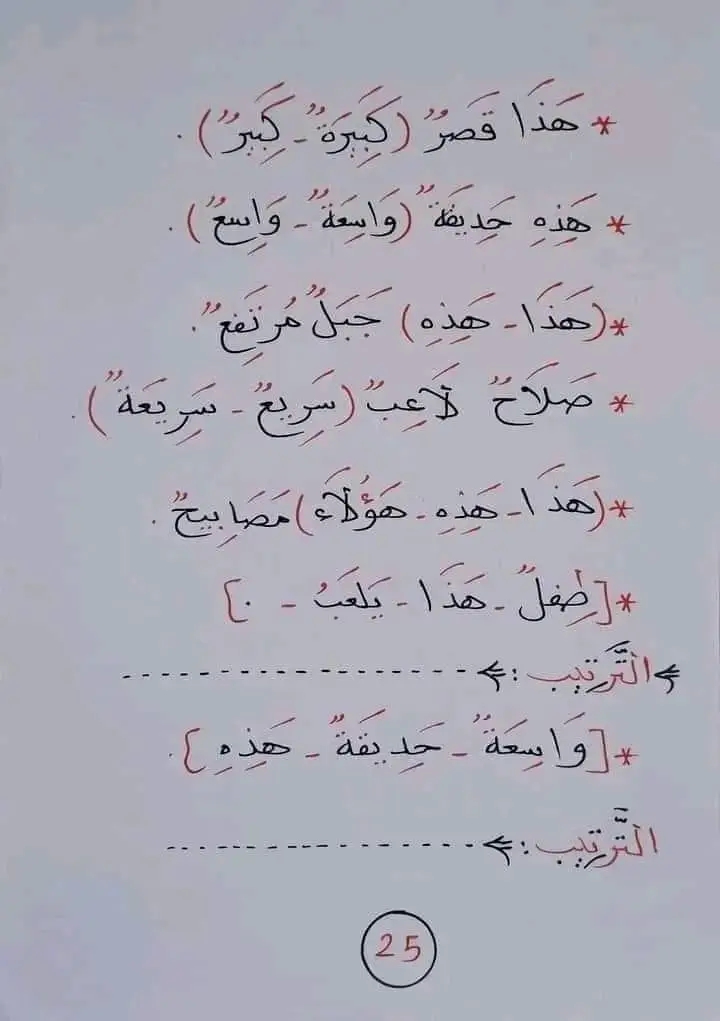 * هَذَا قَصرٌ (كَبِيرَةٌ - كَبِيرٌ).
* هَذِهِ حَدِيقَةٌ (وَاسِعَةٌ - وَاسِعٌ).
* (هَذَا - هَذِهِ) جَبَلٌ مُرتَفِعٌ.
* صَلَاحٌ لَاعِبٌ (سَرِيعٌ - سَرِيعَةٌ).
* (هَذَا - هَذِهِ - هَؤُلَاءِ) مَصَابِيحٌ.
* [طِفلٌ - هَذَا - يَلعَبُ - .]
التَّرتِيب :
* [وَاسِعَةٌ - حَدِيقَةٌ - هَذِهِ].
التَّرتِيب :
25